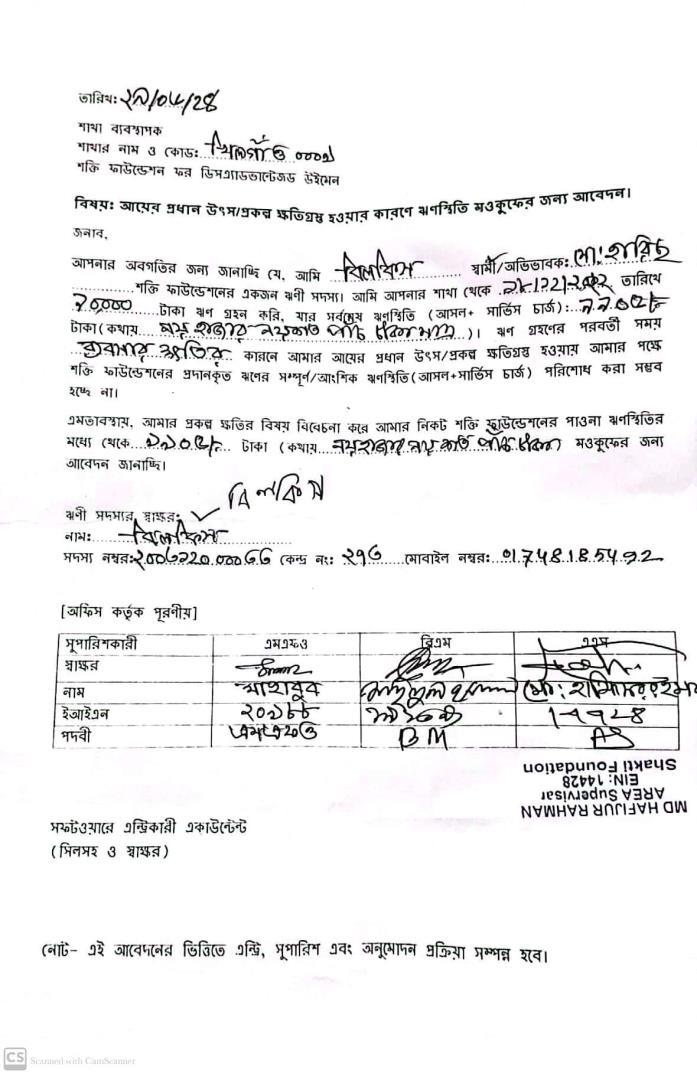 তারিখ:
শাখা ব্যবস্থাপক
শাখার নাম ও কোড: খিলগাঁও ০০০১
শক্তি ফাউন্ডেশন ফর ডিসএ্যাডভান্টেজড উইমেন
বিষয়: আয়ের প্রধান উৎস/প্রকল্প ক্ষতিগ্রস্থ হওয়ার কারণে ঋণস্থিতি মওকুফের জন্য আবেদন।
জনাব,
আপনার অবগতির জন্য জানাচ্ছি যে, আমি বিলকিস স্বামী/অভিভাবক: মো: হারিছ
শক্তি ফাউন্ডেশনের একজন ঋণী সদস্য। আমি আপনার শাখা থেকে তারিখে
টাকা ঋণ গ্রহন করি, যার সর্বশেষ ঋণস্থিতি (আসল+ সার্ভিস চার্জ):
টাকা (কথায় )। ঋণ গ্রহণের পরবর্তী সময়
ব্যবসার ক্ষতির কারনে আমার আয়ের প্রধান উৎস/প্রকল্প ক্ষতিগ্রস্থ হওয়ায় আমার পক্ষে
শক্তি ফাউন্ডেশনের প্রদানকৃত ঋণের সম্পূর্ণ/আংশিক ঋণস্থিতি (আসল+সার্ভিস চার্জ) পরিশোধ করা সম্ভব
হচ্ছে না।
এমতাবস্থায়, আমার প্রকল্প ক্ষতির বিষয় বিবেচনা করে আমার নিকট শক্তি ফাউন্ডেশনের পাওনা ঋণস্থিতির
মধ্যে থেকে টাকা (কথায় মওকুফের জন্য
আবেদন জানাচ্ছি।
ঋণী সদস্যর স্বাক্ষর: বিলকিস
নাম: বিলকিস
সদস্য নম্বর: কেন্দ্র নং: মোবাইল নম্বর: 01748185492
[অফিস কর্তৃক পূরণীয়]
সুপারিশকারী এমএফও বিএম এএস
স্বাক্ষর
নাম মাহাবুব
ইআইএন ২০১৮৮ 14428
পদবী এমএফও BM AS
MD HAFIJUR RAHMAN
AREA Supervisar
EIN: 14428
Shakti Foundation
সফটওয়ারে এন্ট্রিকারী একাউন্টেন্ট
(সিলসহ ও স্বাক্ষর)
নোট- এই আবেদনের ভিত্তিতে এন্ট্রি, সুপারিশ এবং অনুমোদন প্রক্রিয়া সম্পন্ন হবে।
CS Scanned with CamScanner